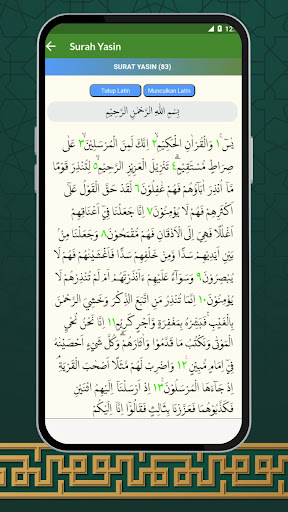 12:00
Surah Yasin
SURAT YASIN (83)
Tutup Latin
Munculkan Latin
بِسْمِ اللّٰهِ الرَّحْمٰنِ الرَّحِيْمِ
يٰسۤ ۚ ١ وَالْقُرْاٰنِ الْحَكِيْمِۙ ٢ اِنَّكَ لَمِنَ الْمُرْسَلِيْنَۙ ٣ عَلٰى
صِرَاطٍ مُّسْتَقِيْمٍۗ ٤ تَنْزِيْلَ الْعَزِيْزِ الرَّحِيْمِۙ ٥ لِتُنْذِرَ قَوْمًا
مَّآ اُنْذِرَ اٰبَاۤؤُهُمْ فَهُمْ غٰفِلُوْنَ ٦ لَقَدْ حَقَّ الْقَوْلُ عَلٰٓى
اَكْثَرِهِمْ فَهُمْ لَا يُؤْمِنُوْنَ ٧ اِنَّا جَعَلْنَا فِيْٓ اَعْنَاقِهِمْ
اَغْلٰلًا فَهِيَ اِلَى الْاَذْقَانِ فَهُمْ مُّقْمَحُوْنَ ٨ وَجَعَلْنَا مِنْۢ بَيْنِ
اَيْدِيْهِمْ سَدًّا وَّمِنْ خَلْفِهِمْ سَدًّا فَاَغْشَيْنٰهُمْ فَهُمْ لَا
يُبْصِرُوْنَ ٩ وَسَوَاۤءٌ عَلَيْهِمْ ءَاَنْذَرْتَهُمْ اَمْ لَمْ تُنْذِرْهُمْ لَا
يُؤْمِنُوْنَ ١٠ اِنَّمَا تُنْذِرُ مَنِ اتَّبَعَ الذِّكْرَ وَخَشِيَ الرَّحْمٰنَ
بِالْغَيْبِۚ فَبَشِّرْهُ بِمَغْفِرَةٍ وَّاَجْرٍ كَرِيْمٍ ١١ اِنَّا نَحْنُ نُحْيِ
الْمَوْتٰى وَنَكْتُبُ مَا قَدَّمُوْا وَاٰثَارَهُمْۗ وَكُلَّ شَيْءٍ اَحْصَيْنٰهُ
فِيْٓ اِمَامٍ مُّبِيْنٍ ١٢ وَاضْرِبْ لَهُمْ مَّثَلًا اَصْحٰبَ الْقَرْيَةِۘ
اِذْ جَاۤءَهَا الْمُرْسَلُوْنَۚ ١٣ اِذْ اَرْسَلْنَآ اِلَيْهِمُ اثْنَيْنِ
فَكَذَّبُوْهُمَا فَعَزَّزْنَا بِثَالِثٍ فَقَالُوْٓا اِنَّآ اِلَيْكُمْ